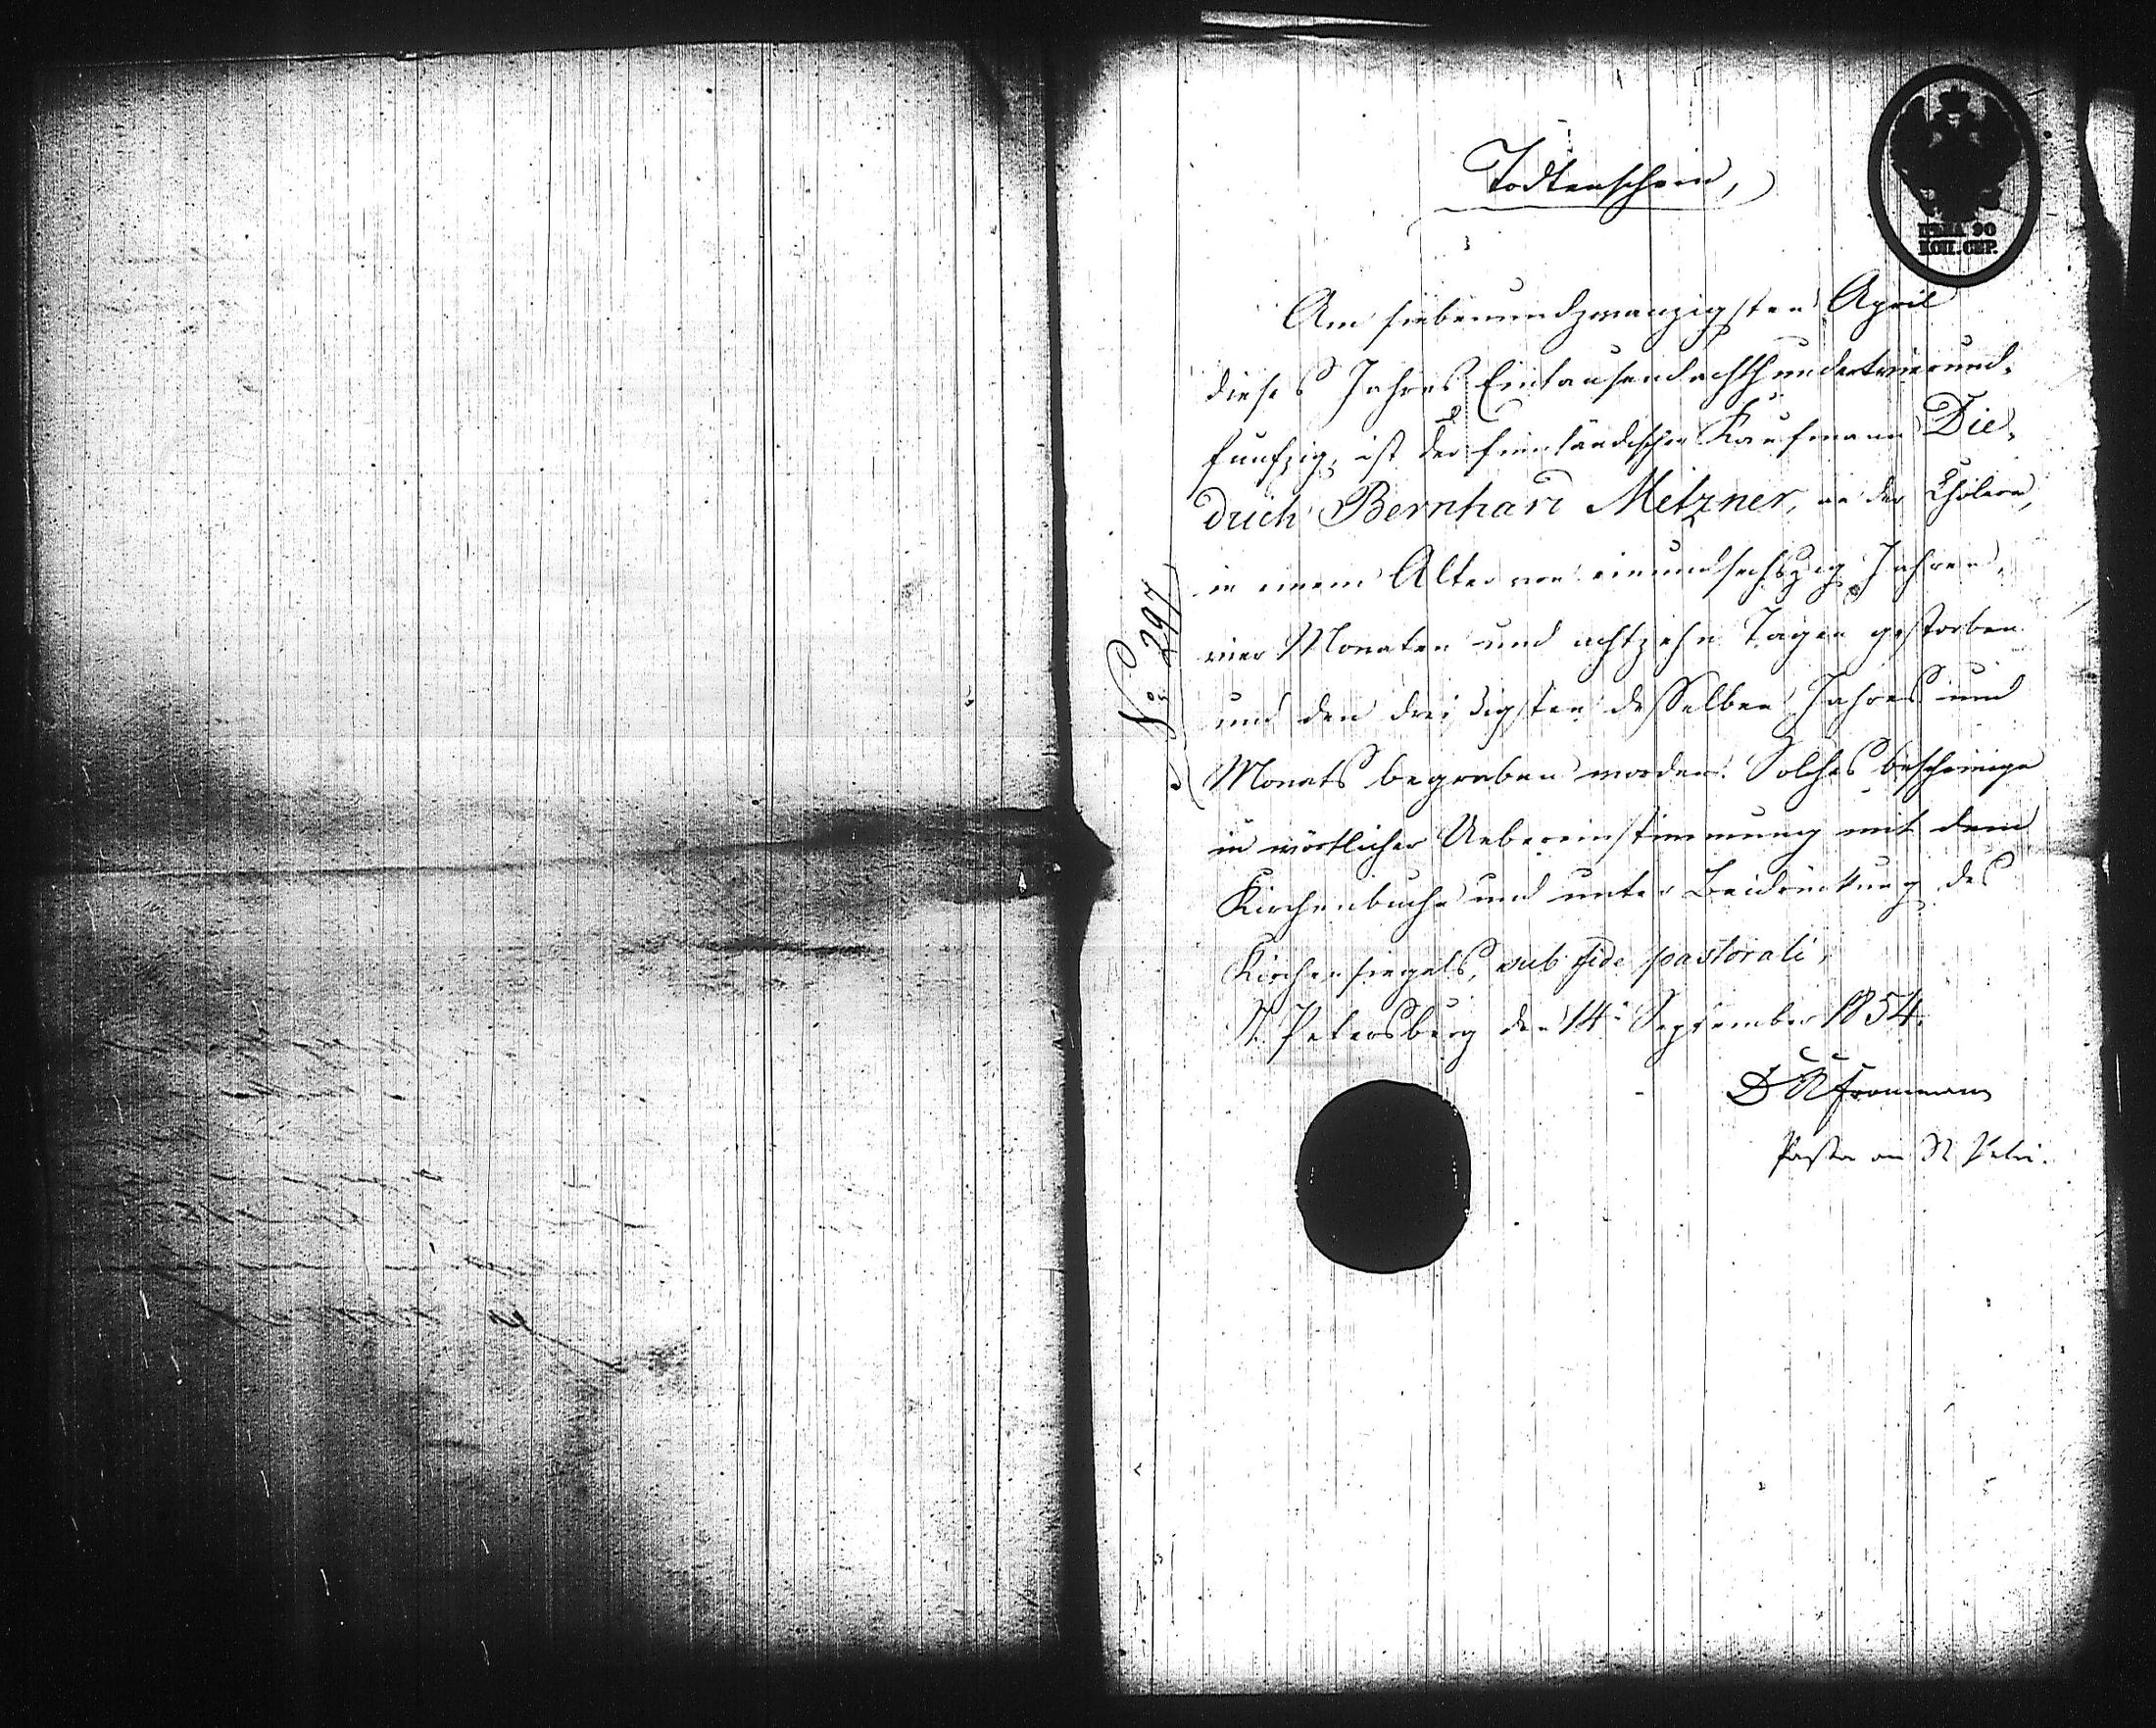 Todtenschein,
ЦѢНА 90
КОП. СЕР.
Am siebenundzwanzigsten April
dieses Jahres Eintausendachthundertvierund-
funfzig, ist der finnländische Kaufmann Die-
drich Bernhard Metzner, an der Cholera,
in einem Alter von einundsechszig Jahren,
vier Monaten und achtzehn Tagen gestorben
und den dreißigsten desselben Jahres und
Monats begraben worden. Solches bescheinige
in wörtlicher Uebereinstimmung mit dem
Kirchenbuche und unter Beidrückung des
Kirchensiegels, sub fide pastorali,
St. Petersburg den 14. September 1854.
Frommann
Pastor an St Petri.
No. 297